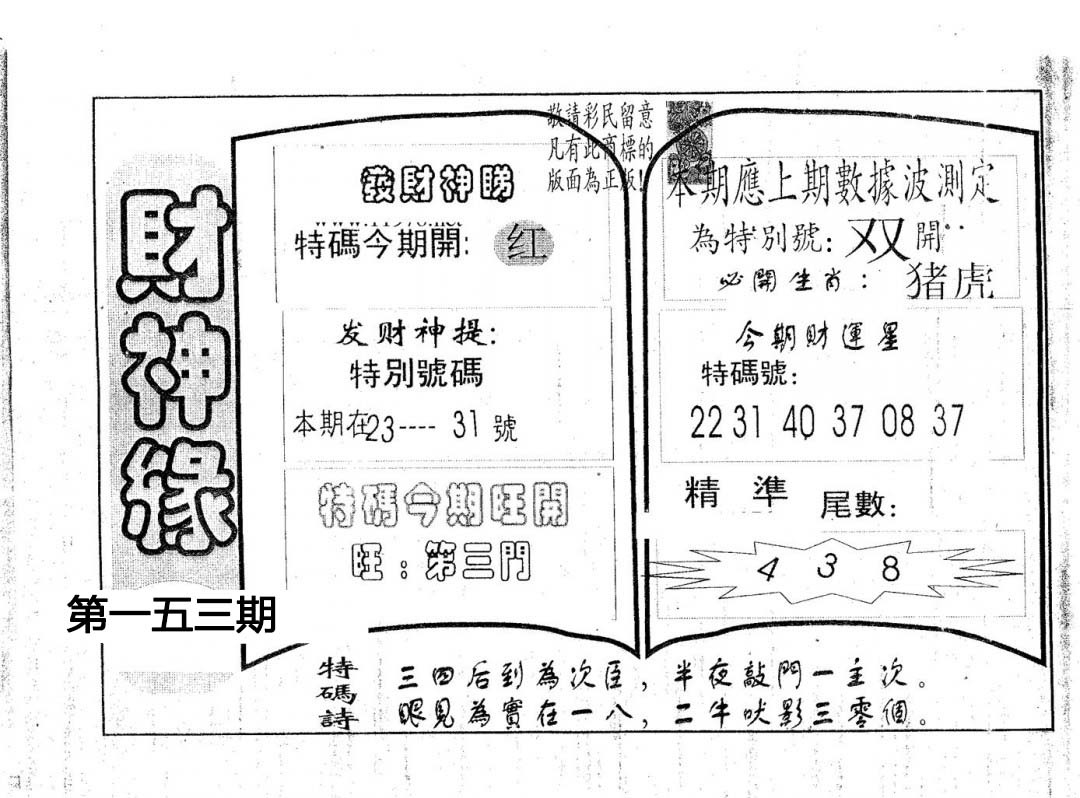 財神緣
第一五三期
敬請彩民留意
凡有此商標的
版面為正版!
發財神睇
特碼今期開: 红
发财神提:
特別號碼
本期在23---- 31 號
特碼今期旺開
旺:第三門
本期應上期數據波測定
為特別號: 双 開
必開生肖: 猪虎
今期財運星
特碼號:
22 31 40 37 08 37
精準 尾數:
4 3 8
特碼詩
三四后到為次臣,半夜敲門一主次。
眼見為實在一八,二牛吠影三零個。